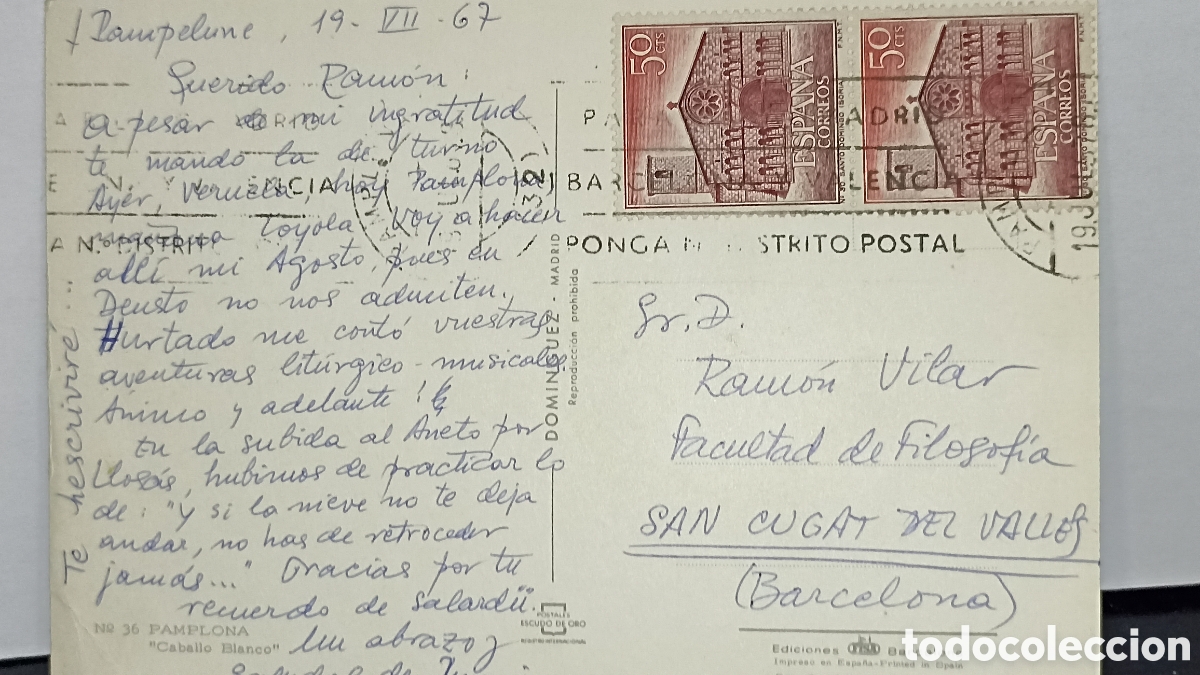 + Pampelune, 19-VII-67
Querido Ramón:
a pesar de mi ingratitud
te mando la de turno
Ayer, Veruela, hoy Pamplona,
mañana Loyola. Voy a hacer
allí mi Agosto, pues en
Deusto no nos admiten.
Hurtado me contó vuestras
aventuras litúrgico-musicales.
Ánimo y adelante!
En la subida al Aneto por
Llosás, hubimos de practicar lo
de: "y si la nieve no te deja
andar, no has de retroceder
jamás..." Gracias por tu
recuerdo de Salardú.
Un abrazo
Te hescriviré...
Nº 36 PAMPLONA
"Caballo Blanco"
DOMINGUEZ - MADRID
Reproducción prohibida
POSTALES
ESCUDO DE ORO
50 CTS
ESPAÑA
CORREOS
F.N.M.T.
Sto DOMINGO (SORIA)
50 CTS
ESPAÑA
CORREOS
F.N.M.T.
Sto DOMINGO (SORIA)
PONGA STRITO POSTAL
Sr. D.
Ramón Vilar
Facultad de Filosofía
SAN CUGAT DEL VALLES
(Barcelona)
Ediciones
Impreso en España-Printed in Spain
todocoleccion